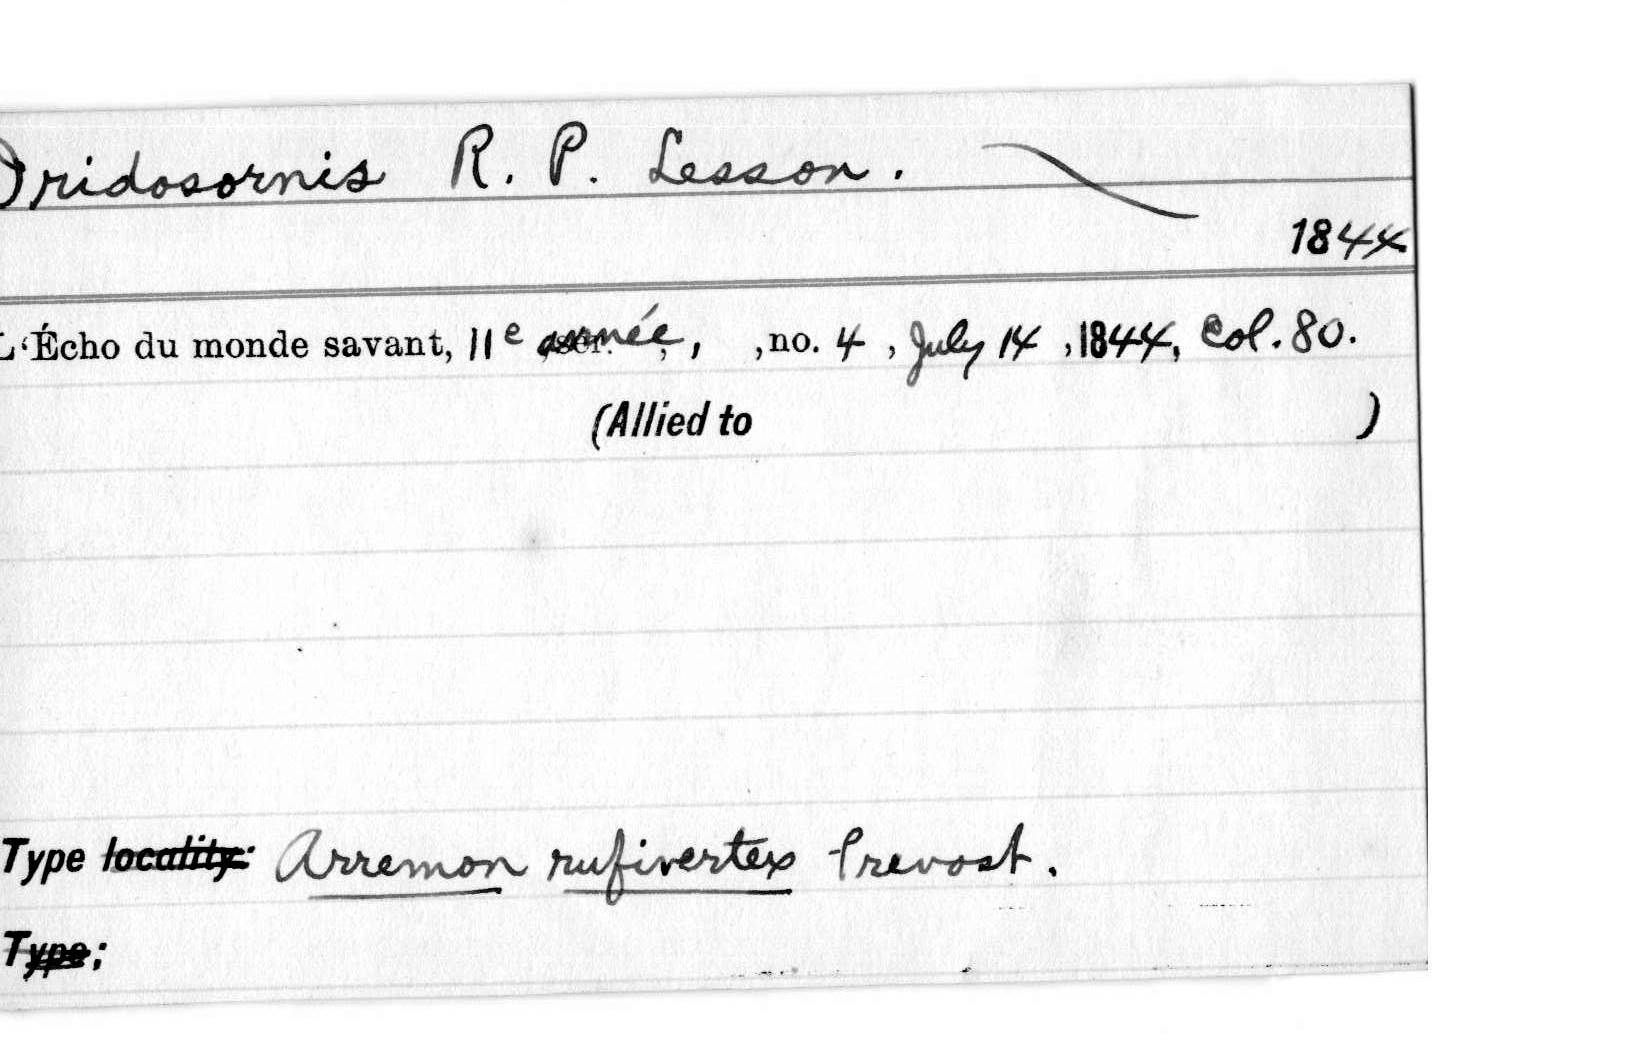 Iridosornis R. P. Lesson.
1844
L'Écho du monde savant, 11e année, , no. 4, July 14, 1844, Col. 80.
(Allied to )
Type locality: Arremon rufivertex Prevost.
Type;